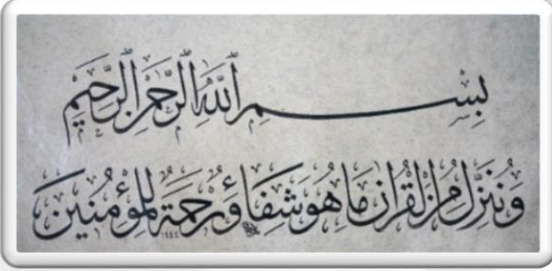 بِسْمِ ٱللَّهِ ٱلرَّحْمَٰنِ ٱلرَّحِيمِ
وَنُنَزِّلُ مِنَ ٱلْقُرْآنِ مَا هُوَ شِفَاءٌ وَرَحْمَةٌ لِلْمُؤْمِنِينَ